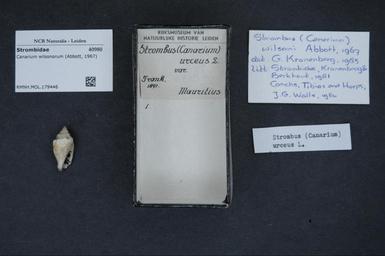 NCB Naturalis - Leiden
Strombidae 40980
Canarium wilsonorum (Abbott, 1967)
RMNH.MOL.179446
RIJKSMUSEUM VAN
NATUURLIJKE HISTORIE LEIDEN
Strombus (Canarium)
urceus L.
var.
Frank,
1871.
Mauritius
1.
Strombus (Canarium)
wilsoni Abbott, 1967
det. G. Kronenberg, 1985
Litt. Strombidae, Kronenberg &
Berkhout, 1984
Conchs, Tibias and Harps,
J.G. Walls, 1980
Strombus (Canarium)
urceus L.